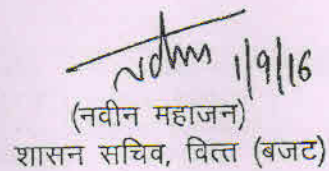 1/9/16
(नवीन महाजन)
शासन सचिव, वित्त (बजट)